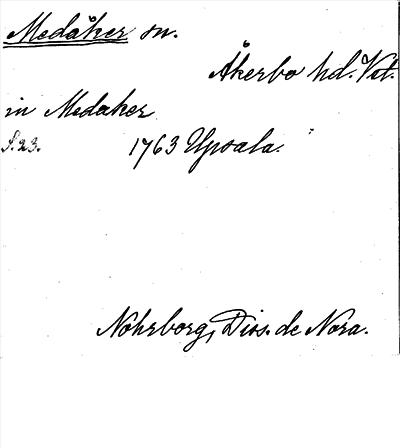 Medåker sn.
Åkerbo hd. Vstm.
in Medaker
S. 23. 1763 Upsala.
Nohrborg, Diss. de Nora.